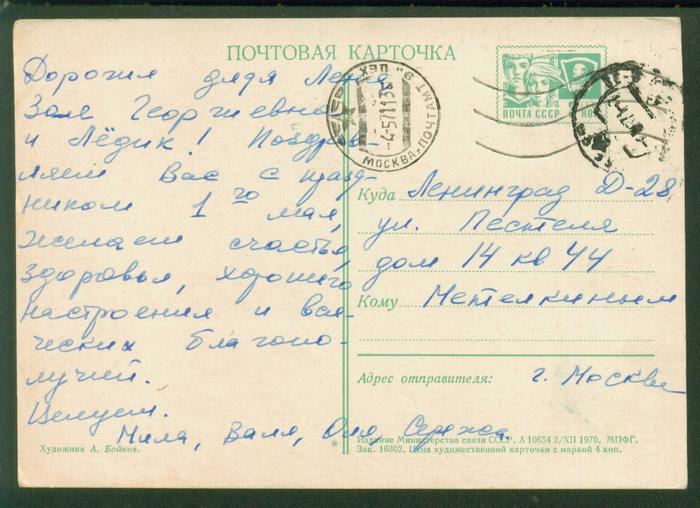 ПОЧТОВАЯ КАРТОЧКА
Дорогие дядя Леня
Зоя Георгиевна
и Лёдик! Поздрав-
ляем Вас с празд-
ником 1го мая,
желаем счастья,
здоровья, хорошего
настроения и вся-
ческих благопо-
лучий.
Целуем.
Мила, Валя, Оля, Сережа
Художник А. Бойков.
ПОЧТА СССР
МОСКВА, ПОЧТАМТ
Куда Ленинград Д-28
ул. Пестеля
дом 14 кв 44
Кому Метелкиным
Адрес отправителя: г. Москва
Издание Министерства связи СССР. А 10654 2/XII 1970. МПФГ.
Зак. 16302. Цена художественной карточки с маркой 4 коп.